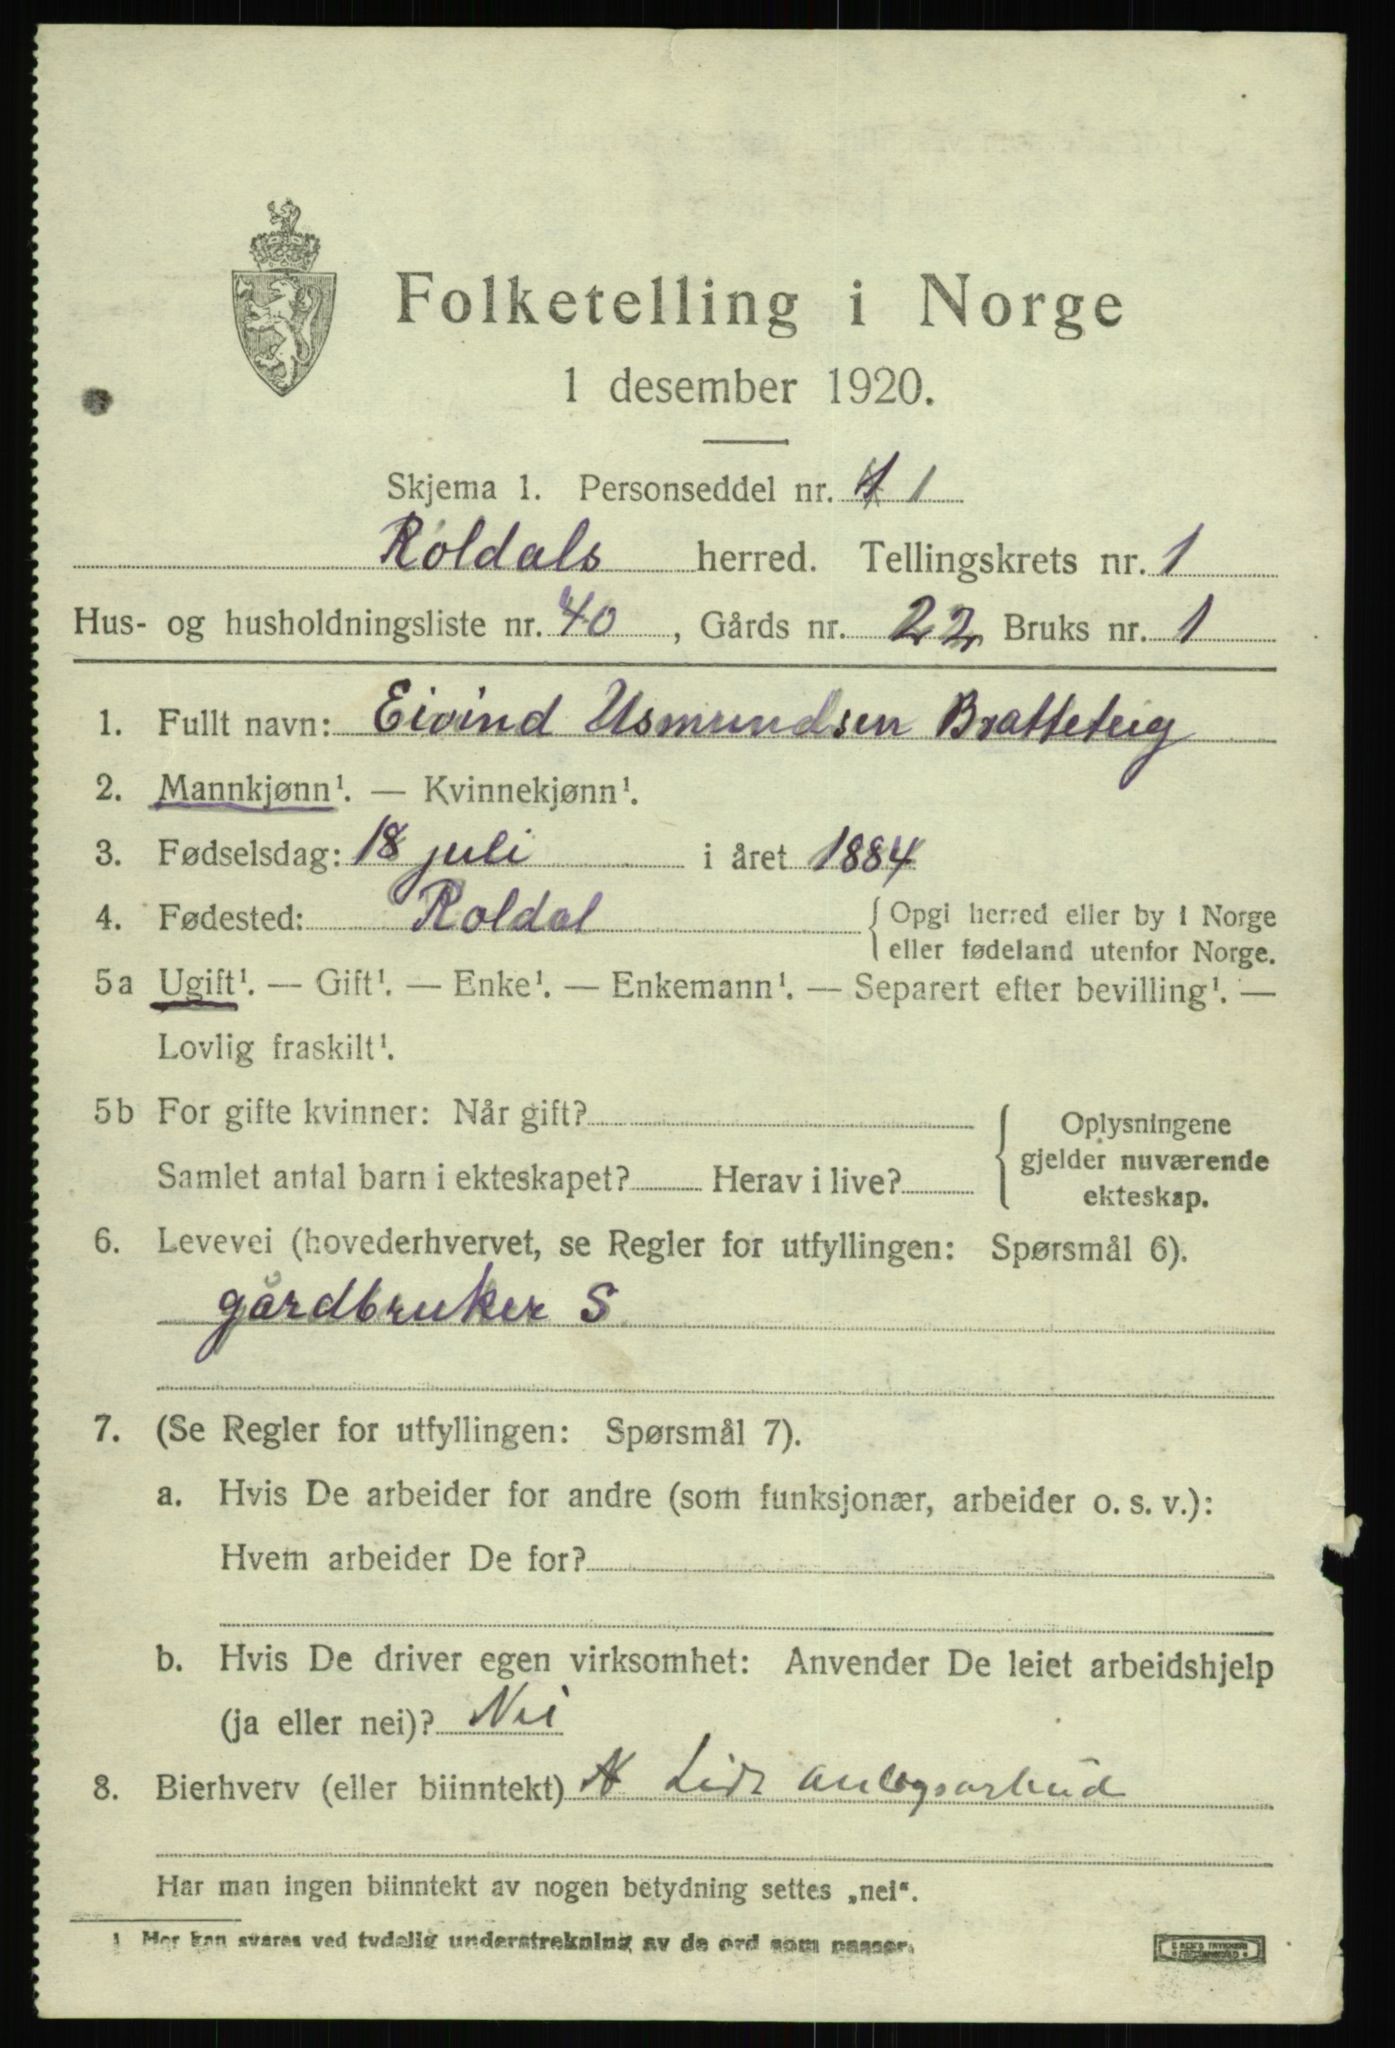 Folketelling i Norge
1 desember 1920.
Skjema 1. Personseddel nr. 1
Røldals herred. Tellingskrets nr. 1
Hus- og husholdningsliste nr. 40, Gårds nr. 22 Bruks nr. 1
1. Fullt navn: Eivind Asmundsen Bratteteig
2. Mannkjønn¹. — Kvinnekjønn¹.
3. Fødselsdag: 18 juli i året 1884
4. Fødested: Roldal {Opgi herred eller by i Norge
eller fødeland utenfor Norge.
5a Ugift¹. — Gift¹. — Enke¹. — Enkemann¹. — Separert efter bevilling¹. —
Lovlig fraskilt¹.
5b For gifte kvinner: Når gift?
Samlet antal barn i ekteskapet? Herav i live?
{Oplysningene
gjelder nuværende
ekteskap.
6. Levevei (hovederhvervet, se Regler for utfyllingen: Spørsmål 6).
gårdbruker S
7. (Se Regler for utfyllingen: Spørsmål 7).
a. Hvis De arbeider for andre (som funksjonær, arbeider o. s. v.):
Hvem arbeider De for?
b. Hvis De driver egen virksomhet: Anvender De leiet arbeidshjelp
(ja eller nei)? Nei
8. Bierhverv (eller biinntekt) anlegsarbeid
Har man ingen biinntekt av nogen betydning settes „nei“.
1 Her kan svares ved tydelig understrekning av de ord som passer.